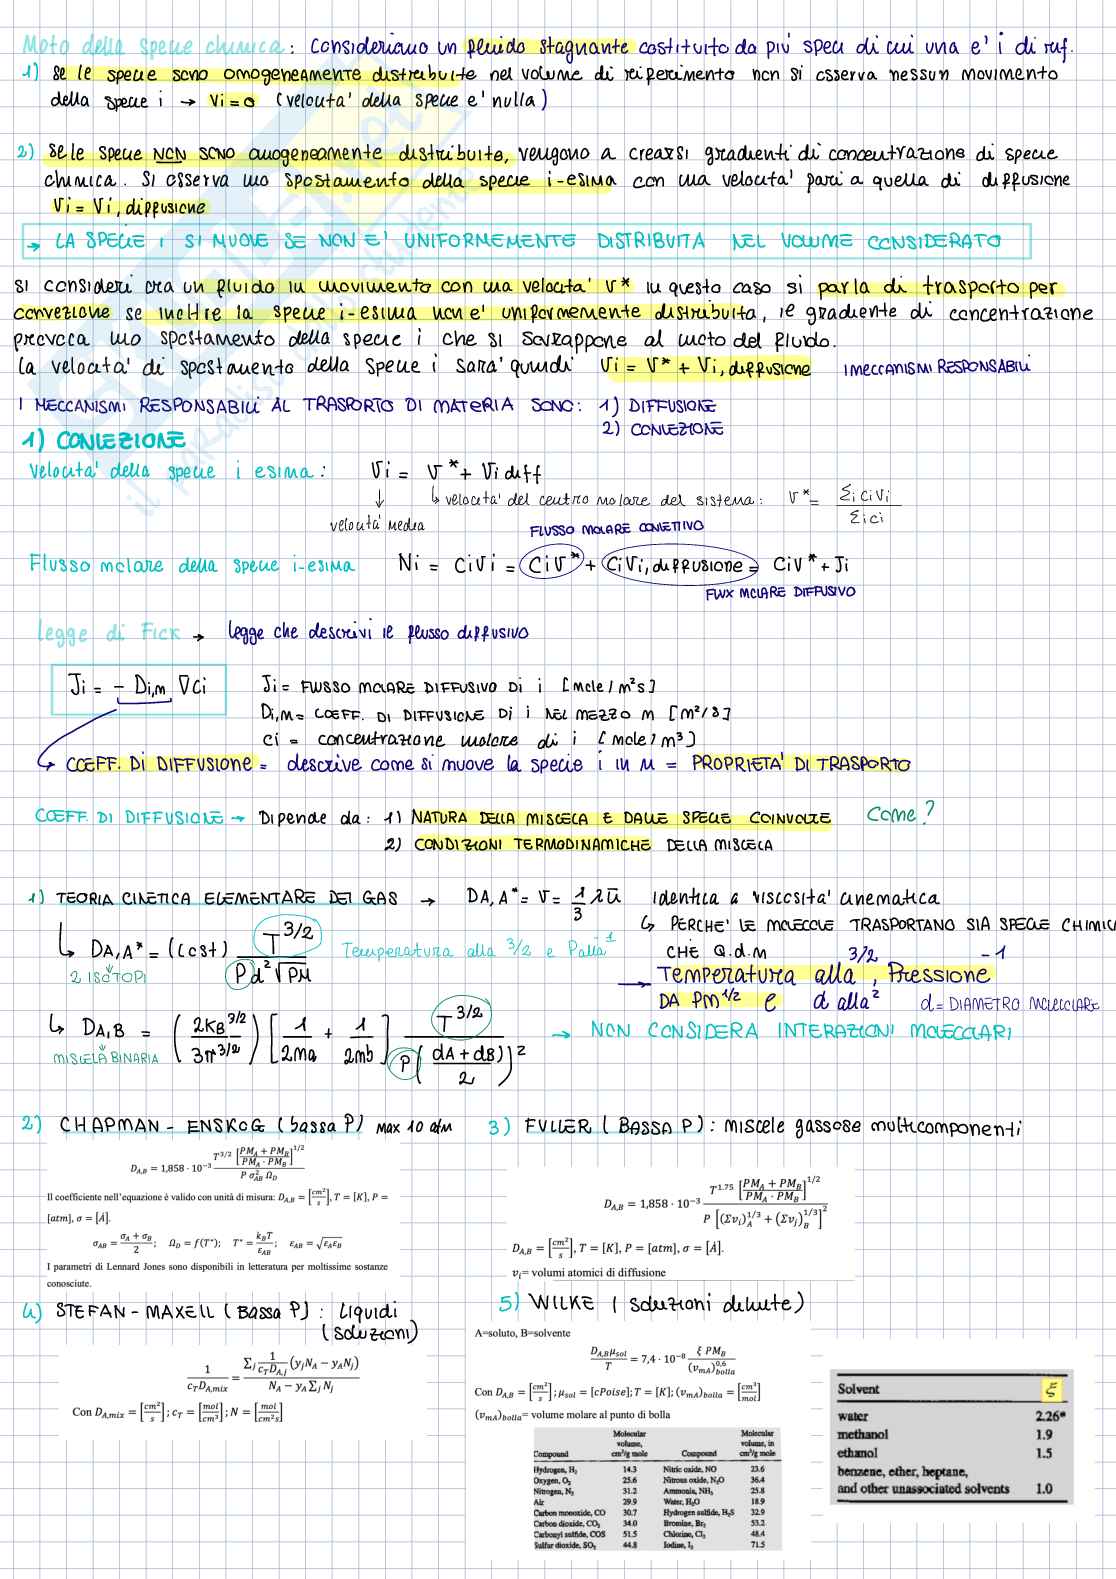 Moto della specie chimica: Consideriamo un fluido stagnante costituito da più speci di cui una e' i di rif.
1) se le specie sono omogeneamente distribuite nel volume di riferimento non si osserva nessun movimento
della specie i → Vi=0 (velocita' della specie e' nulla)
2) Se le specie NON SONO omogeneamente distribuite, vengono a crearsi gradienti di concentrazione di specie
chimica. Si osserva uno spostamento della specie i-esima con una velocita' pari a quella di diffusione
Vi = Vi, diffusione
→ LA SPECIE i SI MUOVE SE NON E' UNIFORMEMENTE DISTRIBUITA NEL VOLUME CONSIDERATO
Si consideri ora un fluido in movimento con una velocita' V* in questo caso si parla di trasporto per
convezione se inoltre la specie i-esima non e' uniformemente distribuita, il gradiente di concentrazione
provoca uno spostamento della specie i che si sovrappone al moto del fluido.
la velocita' di spostamento della specie i sara' quindi Vi = V* + Vi, diffusione I MECCANISMI RESPONSABILI
I MECCANISMI RESPONSABILI AL TRASPORTO DI MATERIA SONO: 1) DIFFUSIONE
2) CONVEZIONE
1) CONVEZIONE
Velocita' della specie i esima: Vi = V* + Vi diff
↓ ↳ velocita' del centro molare del sistema: V* = Σi ci vi / Σi ci
velocita' media
FLUSSO MOLARE CONVETTIVO
Flusso molare della specie i-esima Ni = CiVi = CiV* + CiVi, diffusione = CiV* + Ji
FLUX MOLARE DIFFUSIVO
legge di Fick → legge che descrivi il flusso diffusivo
Ji = - Di,m ∇Ci
Ji = FLUSSO MOLARE DIFFUSIVO Di i [mole/m²s]
Di,m = COEFF. DI DIFFUSIONE Di i NEL MEZZO m [m²/s]
ci = concentrazione molare di i [mole/m³]
↳ COEFF. Di DIFFUSIONE = descrive come si muove la specie i in M = PROPRIETA' DI TRASPORTO
COEFF. DI DIFFUSIONE → Dipende da: 1) NATURA DELLA MISCELA E DALLE SPECIE COINVOLTE Come?
2) CONDIZIONI TERMODINAMICHE DELLA MISCELA
1) TEORIA CINETICA ELEMENTARE DEI GAS → DA,A* = V = 1/3 λ ū identica a viscosita' cinematica
↳ PERCHE' LE MOLECOLE TRASPORTANO SIA SPECIE CHIMIC
CHE Q.d.m
↳ DA,A* = (cost) T^3/2 / P d² √PM Temperatura alla 3/2 e P alla -1
2 ISOTOPI
→ Temperatura alla 3/2, Pressione -1
DA PM^1/2 e d alla² d = DIAMETRO MOLECOLARE
↳ DA,B = (2KB^3/2 / 3π^3/2) [1/2ma + 1/2mb] T^3/2 / P((dA + dB)/2)² → NON CONSIDERA INTERAZIONI MOLECOLARI
MISCELA BINARIA
2) CHAPMAN - ENSKOG (bassa P) MAX 10 atm
D_A,B = 1,858 · 10⁻³ T^3/2 [PM_A + PM_B / PM_A · PM_B]^1/2 / P σ²_AB Ω_D
Il coefficiente nell'equazione è valido con unità di misura: D_A,B = [cm²/s], T = [K], P =
[atm], σ = [Å].
σ_AB = σ_A + σ_B / 2; Ω_D = f(T*); T* = k_B T / ε_AB; ε_AB = √ε_A ε_B
I parametri di Lennard Jones sono disponibili in letteratura per moltissime sostanze
conosciute.
3) FULLER (BASSA P): miscele gassose multicomponenti
D_A,B = 1,858 · 10⁻³ T^1.75 [PM_A + PM_B / PM_A · PM_B]^1/2 / P [(Σv_i)_A^1/3 + (Σv_j)_B^1/3]²
D_A,B = [cm²/s], T = [K], P = [atm], σ = [Å].
v_i= volumi atomici di diffusione
4) STEFAN - MAXELL (Bassa P): Liquidi
(soluzioni)
1 / c_T D_A,mix = Σ_j 1/(c_T D_A,j) (y_j N_A − y_A N_j) / N_A − y_A Σ_j N_j
Con D_A,mix = [cm²/s]; c_T = [mol/cm³]; N = [mol/cm²s]
5) WILKE (soluzioni diluite)
A=soluto, B=solvente
D_A,B μ_sol / T = 7,4 · 10⁻⁸ ξ PM_B / (v_mA)^0,6_bolla
Con D_A,B = [cm²/s]; μ_sol = [cPoise]; T = [K]; (v_mA)_bolla = [cm³/mol]
(v_mA)_bolla= volume molare al punto di bolla
Compound Molecular volume, cm³/g mole Compound Molecular volume, in cm³/g mole
Hydrogen, H₂ 14.3 Nitric oxide, NO 23.6
Oxygen, O₂ 25.6 Nitrous oxide, N₂O 36.4
Nitrogen, N₂ 31.2 Ammonia, NH₃ 25.8
Air 29.9 Water, H₂O 18.9
Carbon monoxide, CO 30.7 Hydrogen sulfide, H₂S 32.9
Carbon dioxide, CO₂ 34.0 Bromine, Br₂ 53.2
Carbonyl sulfide, COS 51.5 Chlorine, Cl₂ 48.4
Sulfur dioxide, SO₂ 44.8 Iodine, I₂ 71.5
Solvent ξ
water 2.26*
methanol 1.9
ethanol 1.5
benzene, ether, heptane,
and other unassociated solvents 1.0